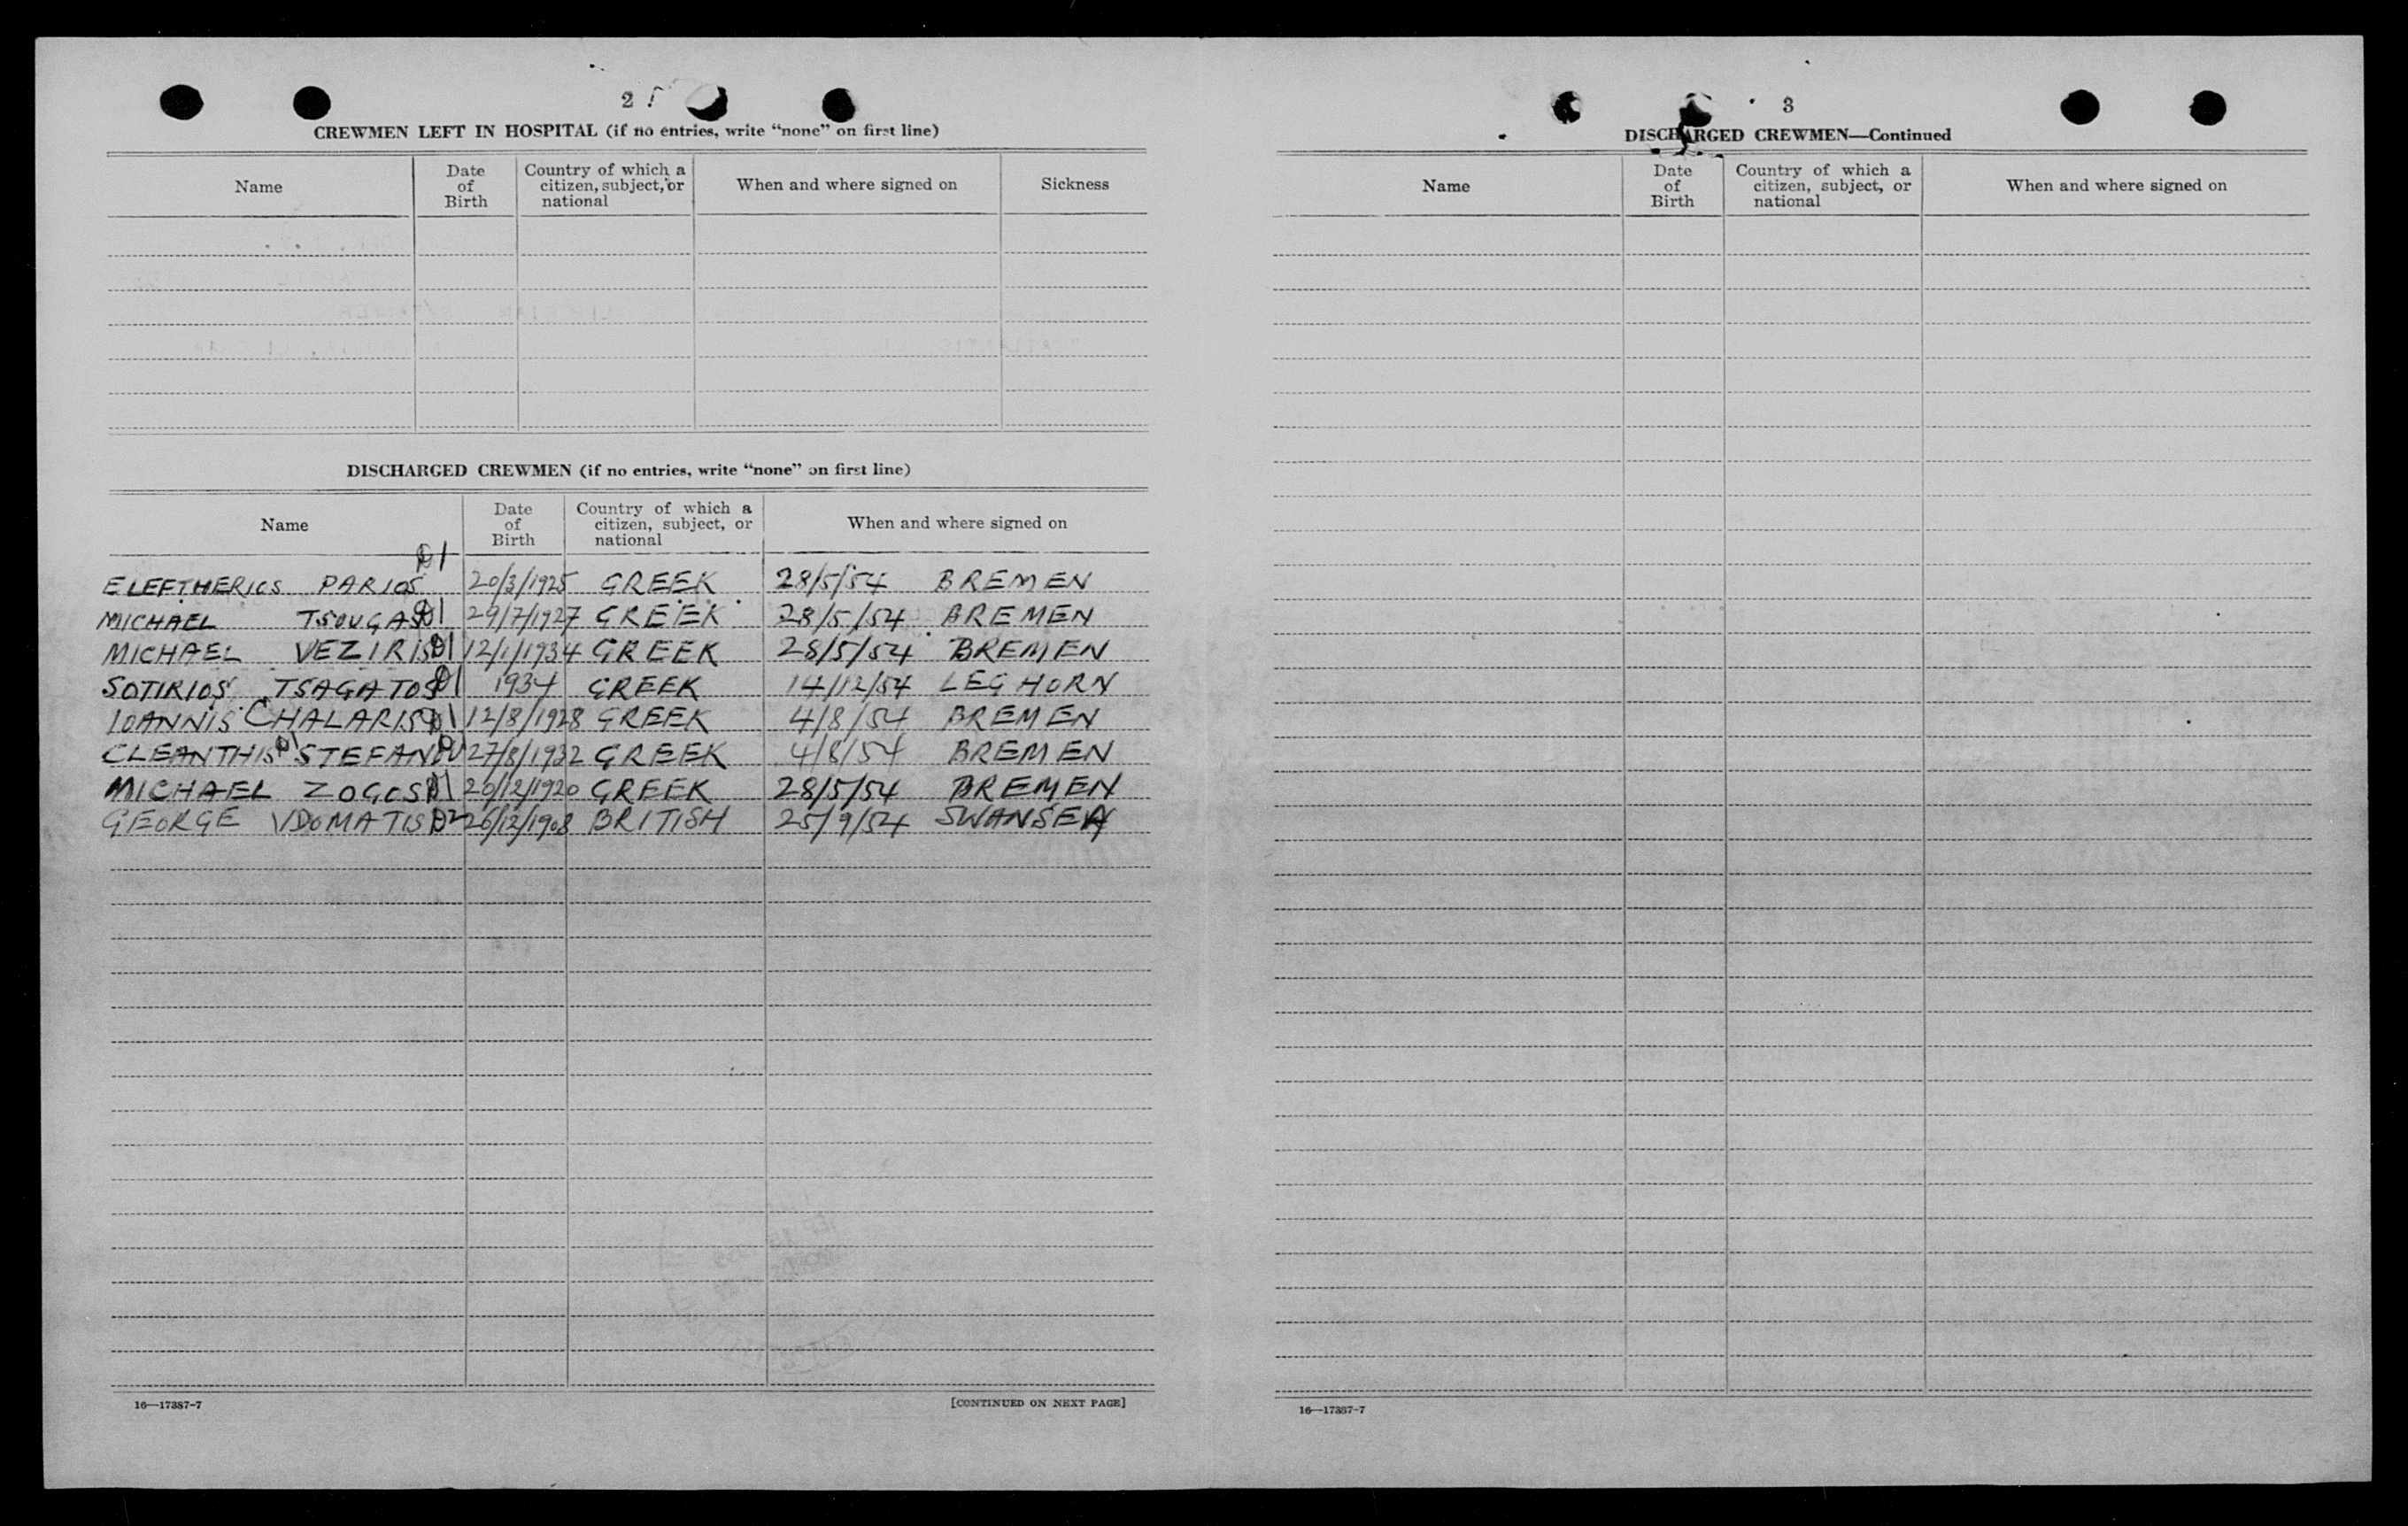 2
CREWMEN LEFT IN HOSPITAL (if no entries, write “none” on first line)
Name
Date of Birth
Country of which a citizen, subject, or national
When and where signed on
Sickness
DISCHARGED CREWMEN (if no entries, write “none” on first line)
Name
Date of Birth
Country of which a citizen, subject, or national
When and where signed on
ELEFTHERIOS PARIOS D1 20/3/1925 GREEK 28/5/54 BREMEN
MICHAEL TSOUGAS D1 29/7/1927 GREEK 28/5/54 BREMEN
MICHAEL VEZIRIS D1 12/1/1934 GREEK 28/5/54 BREMEN
SOTIRIOS TSAGATOS D1 1934 GREEK 14/12/54 LEGHORN
IOANNIS CHALARIS D1 12/8/1928 GREEK 4/8/54 BREMEN
CLEANTHIS D1 STEFANOU 27/8/1932 GREEK 4/8/54 BREMEN
MICHAEL ZOGOS D1 20/12/1920 GREEK 28/5/54 BREMEN
GEORGE VDOMATIS D2 26/12/1908 BRITISH 25/9/54 SWANSEA
16—17387-7
[CONTINUED ON NEXT PAGE]
3
DISCHARGED CREWMEN—Continued
Name
Date of Birth
Country of which a citizen, subject, or national
When and where signed on
16—17387-7